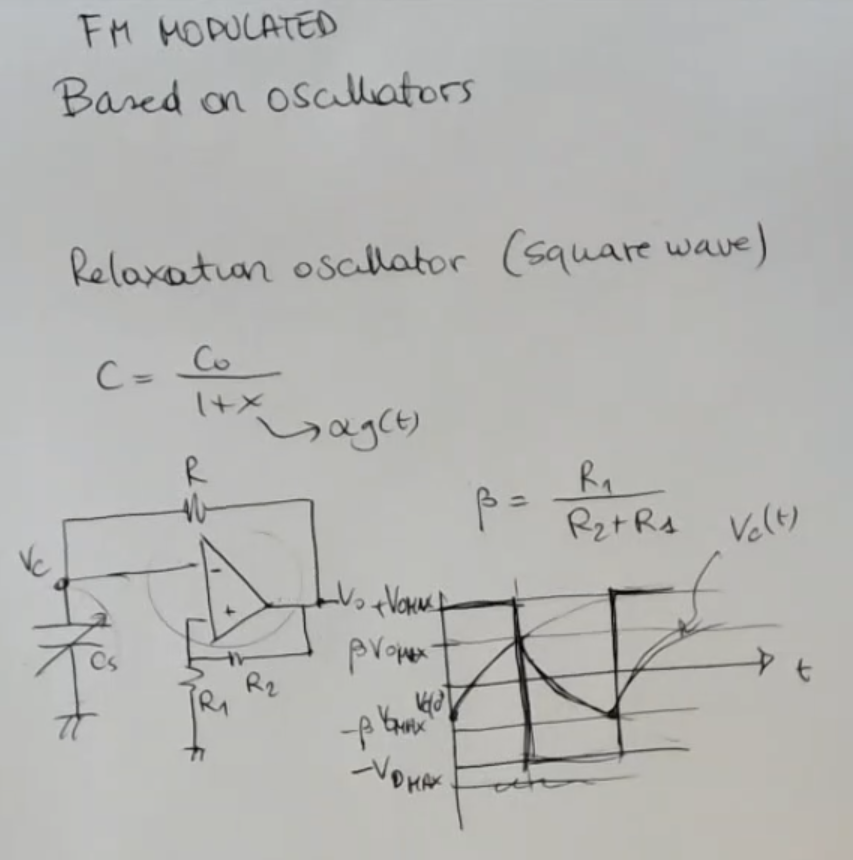 FM MODULATED
Based on oscillators
Relaxation oscillator (square wave)
C = C₀ / 1+x
→ αg(t)
R
β = R₁ / R₂+R₁
Vc(t)
Vc
-
+
Vo
+VoMAX
βVoMAX
Cs
R₁
R₂
t
-βVoMAX
-VoMAX